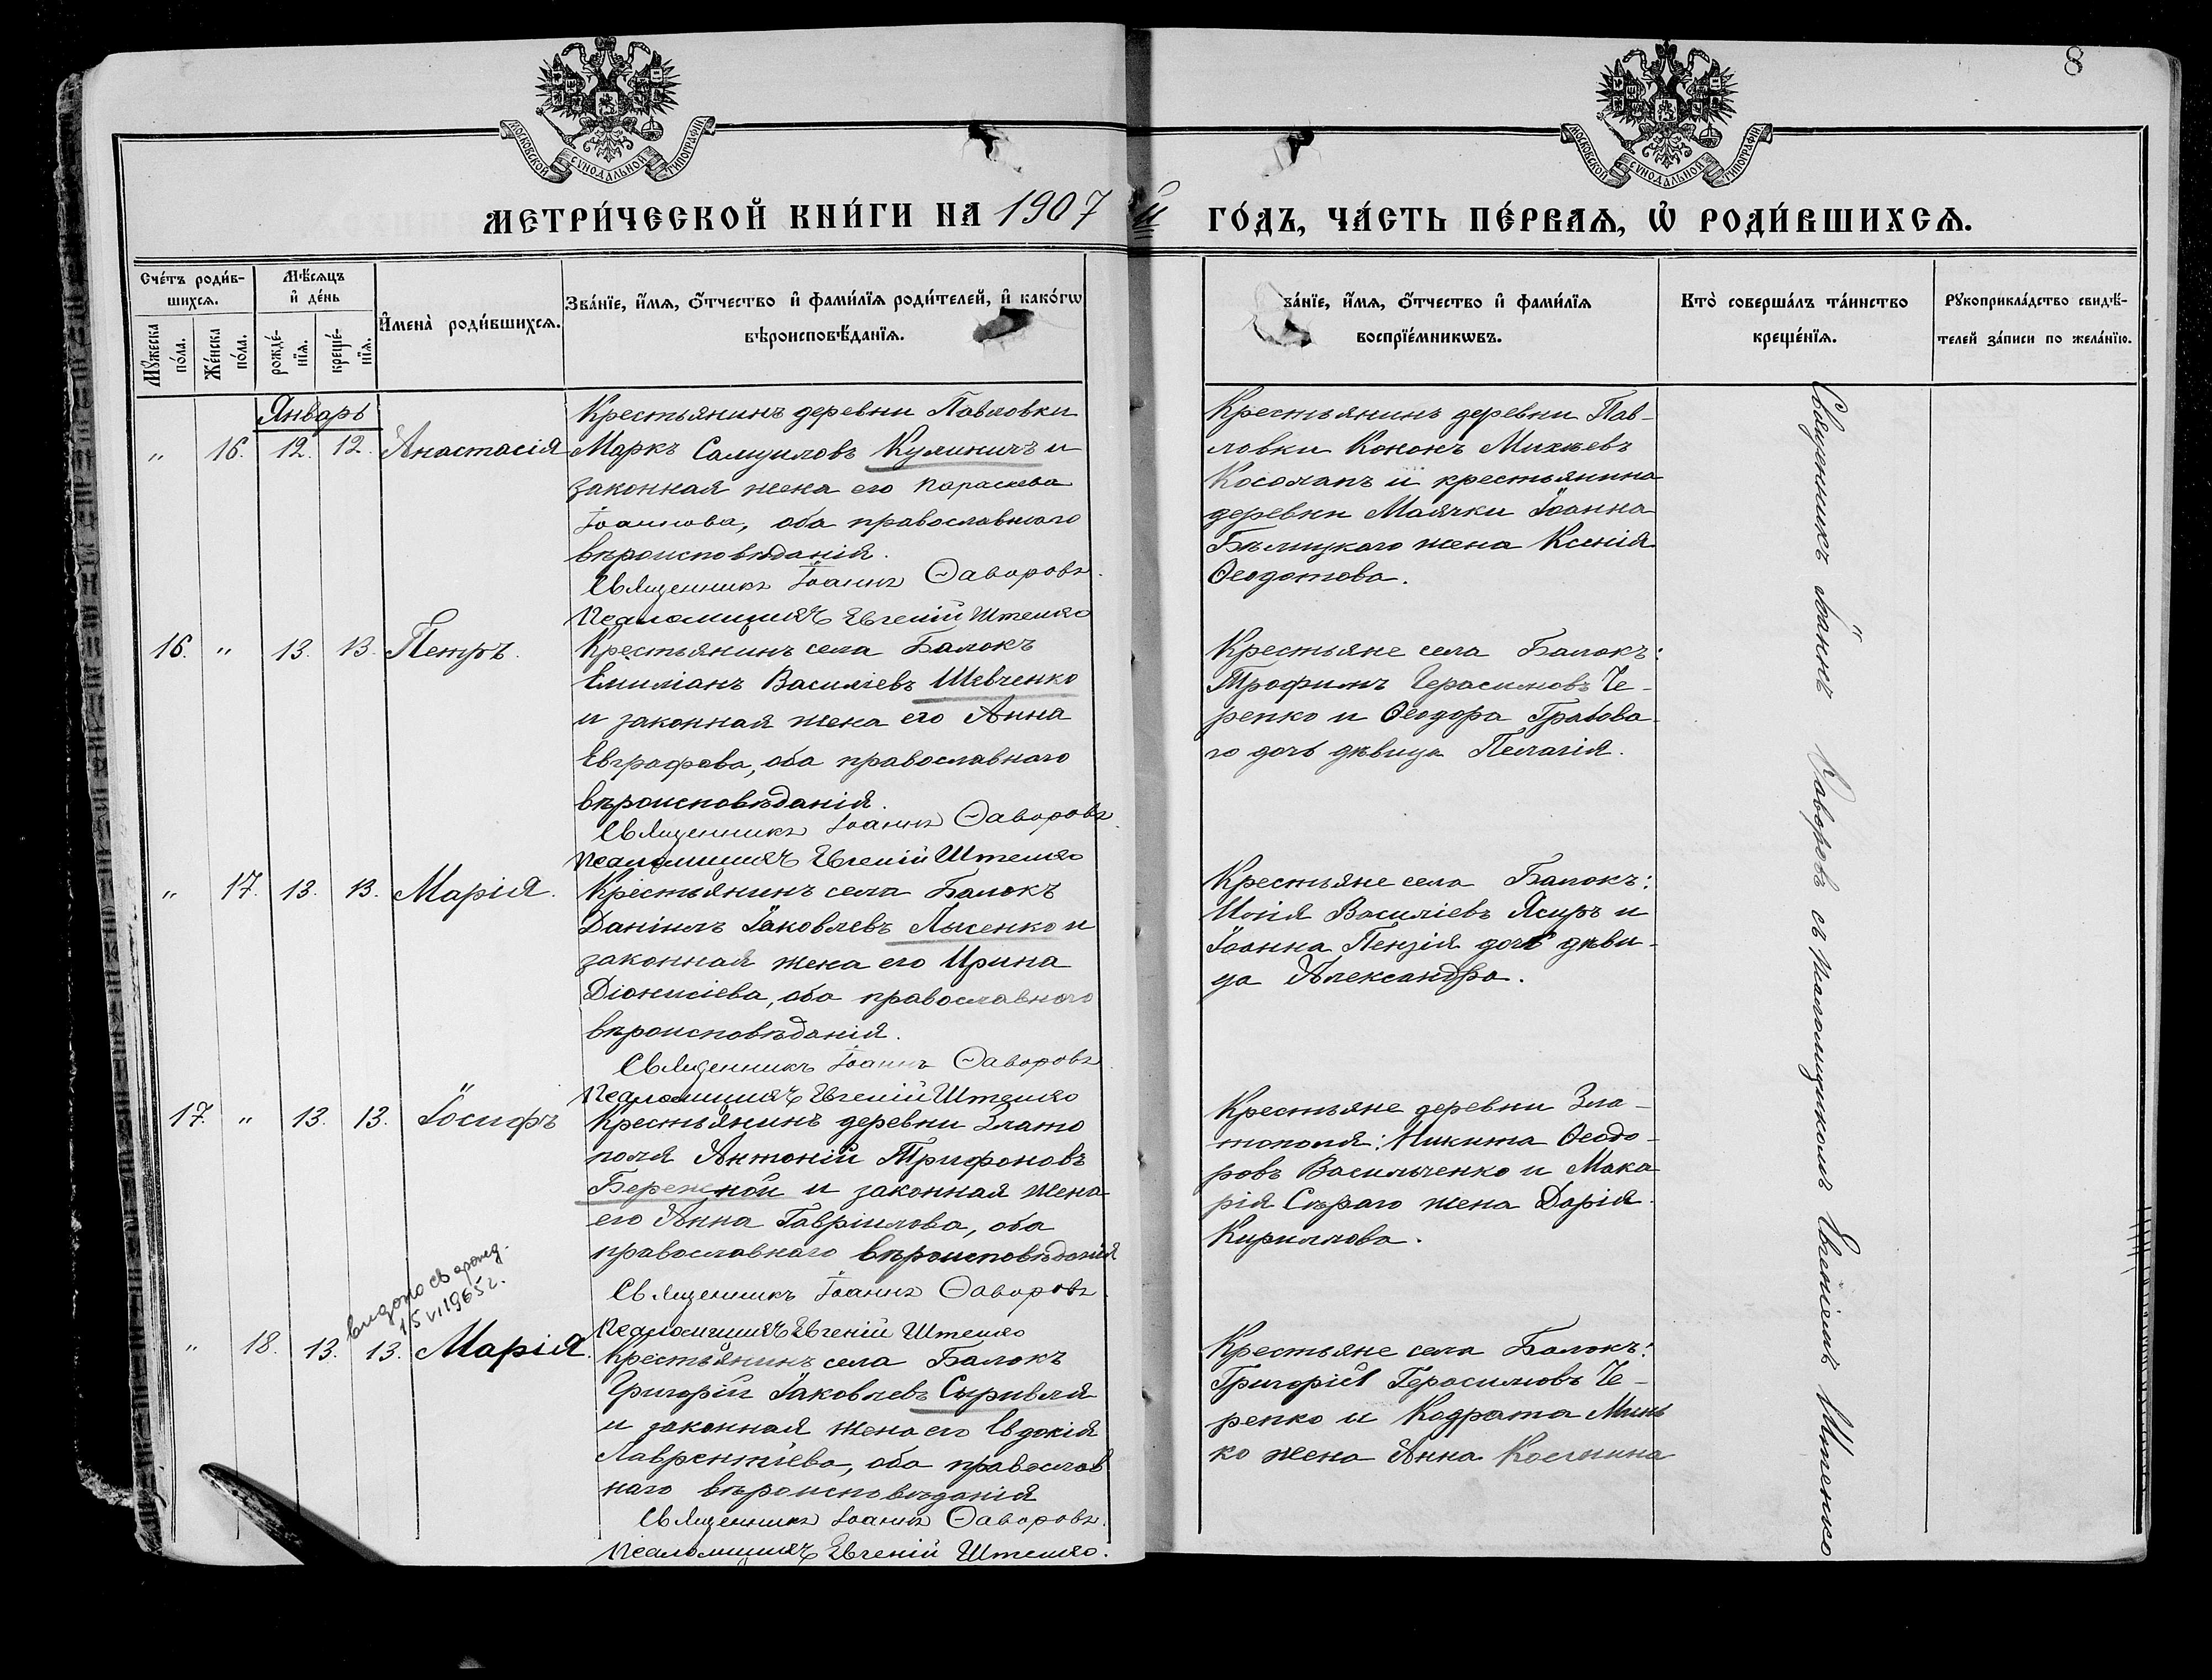 8
МОСКОВСКОЙ СУНОДАЛЬНОЙ ТИПОГРАФІИ
МОСКОВСКОЙ СУНОДАЛЬНОЙ ТИПОГРАФІИ
МЕТРИ́ЧЕСКОЙ КНИ́ГИ НА 1907 й ГО́ДЪ, ЧА́СТЬ ПЕ́РВАЯ, Ѡ҆ РОДИ́ВШИХСЯ.
Сче́тъ роди́в-
шихся.
Мѣ́сяцъ
и҆ де́нь
Мꙋ́жеска по́ла.
Же́нска по́ла.
рожде́-
нїя.
креще́-
нїя.
И҆мена̀ роди́вшихся.
Зва́нїе, и҆́мя, ѻ҆́тчество и҆ фами́лїя роди́телей, и҆ како́гѡ
вѣроисповѣ́данїя.
за́нїе, и҆́мя, ѻ҆́тчество и҆ фами́лїя
воспрїе́мникѡвъ.
Кто̀ соверша́лъ та́инство
креще́нїя.
Рꙋкоприкла́дство свидѣ́-
телей за́писи по жела́нїю.
Январь
" 16. 12. 12. Анастасія
Крестьянинъ деревни Павловки
Маркъ Самуиловъ Кулиничъ и
законная жена его Параскева
Іоаннова, оба православнаго
вѣроисповѣданія.
Священникъ Іоаннъ Ѳаворовъ.
Псаломщикъ Евгеній Штенько
Крестьянинъ деревни Пав-
ловки Кононъ Михѣевъ
Косолапъ и крестьянина
деревни Маячки Іоанна
Бѣлицкаго жена Ксенія
Ѳеодотова.
16. " 13. 13. Петръ.
Крестьянинъ села Балокъ
Емиліанъ Василіевъ Шевченко
и законная жена его Анна
Евграфова, оба православнаго
вѣроисповѣданія.
Священникъ Іоаннъ Ѳаворовъ.
Псаломщикъ Евгеній Штенько
Крестьяне села Балокъ:
Трофимъ Герасимовъ Че-
репко и Ѳеодора Грабова-
го дочь дѣвица Пелагія.
" 17. 13. 13. Марія.
Крестьянинъ села Балокъ
Даніилъ Іаковлевъ Лысенко и
законная жена его Ирина
Діонисіева, оба православнаго
вѣроисповѣданія.
Священникъ Іоаннъ Ѳаворовъ.
Псаломщикъ Евгеній Штенько
Крестьяне села Балокъ:
Илія Василіевъ Ясиръ и
Іоанна Пензія дочь дѣви-
ца Александра.
17. " 13. 13. Іосифъ
Крестьянинъ деревни Злато
поля Антоній Трифоновъ
Бережной и законная жена
его Анна Гавріилова, оба
православнаго вѣроисповѣданія
Священникъ Іоаннъ Ѳаворовъ.
Псаломщикъ Евгеній Штенько
Крестьяне деревни Зла-
тополя: Никита Ѳеодо-
ровъ Васильченко и Мака
рія Сѣраго жена Дарія
Кириллова.
видано св арожд.
15 VI 1965 г.
" 18. 13. 13. Марія.
Крестьянинъ села Балокъ
Григорій Іаковлевъ Сыривля
и законная жена его Евдокія
Лаврентіева, оба православ
наго вѣроисповѣданія
Священникъ Іоаннъ Ѳаворовъ.
Псаломщикъ Евгеній Штенько.
Крестьяне села Балокъ:
Григорій Герасимовъ Че-
репко и Кодрата Минь
ко жена Анна Космина
Священникъ Іоаннъ Ѳаворовъ съ псаломщикомъ Евгеніемъ Штенько